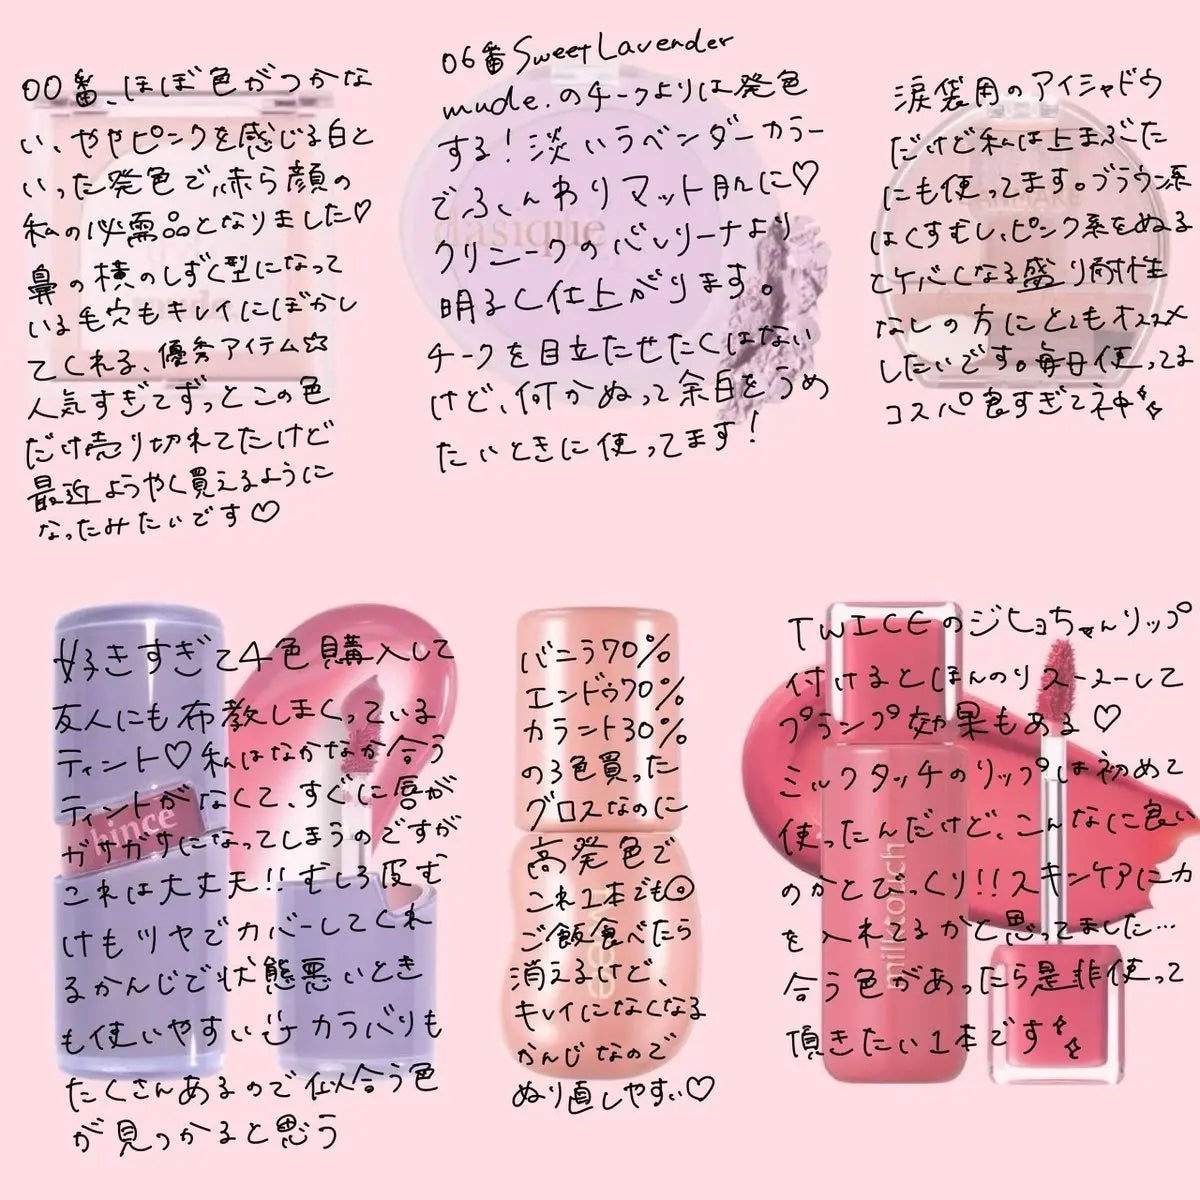 00番、ほぼ色がつかな
い、ややピンクを感じる白と
いった発色で、赤ら顔の
私の必需品となりました♡
鼻の横のしずく型になって
いる毛穴もキレイにぼかし
てくれる、優秀アイテム☆
人気すぎてずっとこの色
だけ売り切れてたけど
最近ようやく買えるように
なったみたいです♡
06番Sweet Lavender
mude.のチークよりは発色
する!淡いラベンダーカラー
でふんわりマット肌に♡
クリニークのバレリーナより
明るく仕上がります。
チークを目立たせたくはない
けど、何かぬって余白をうめ
たいときに使ってます!
dasique
涙袋用のアイシャドウ
だけど私は上まぶた
にも使ってます。ブラウン系
はくすむし、ピンク系をぬる
とケバくなる盛り耐性
なしの方にとてもオススメ
したいです。毎日使ってる
コスパ良すぎて神✨
CANMAKE
好きすぎて4色購入して
友人にも布教しまくっている
ティント♡私はなかなか合う
ティントがなくて、すぐに唇が
ガサガサになってしまうのですが
これは大丈夫!!むしろ皮む
けもツヤでカバーしてくれ
るかんじで状態悪いとき
も使いやすい カラバリも
たくさんあるので似合う色
が見つかると思う
hince
バニラ70%
エンドウ70%
カラント30%
の3色買った
グロスなのに
高発色で
これ1本でも◎
ご飯食べたら
消えるけど、
キレイになくなる
かんじなので
ぬり直しやすい♡
TWICEのジヒョちゃんリップ
付けるとほんのりスースーして
プランプ効果もある♡
ミルクタッチのリップは初めて
使ったんだけど、こんなに良い
のかとびっくり!!スキンケアに力
を入れてるかと思ってました…
合う色があったら是非使って
頂きたい1本です✨
milktouch